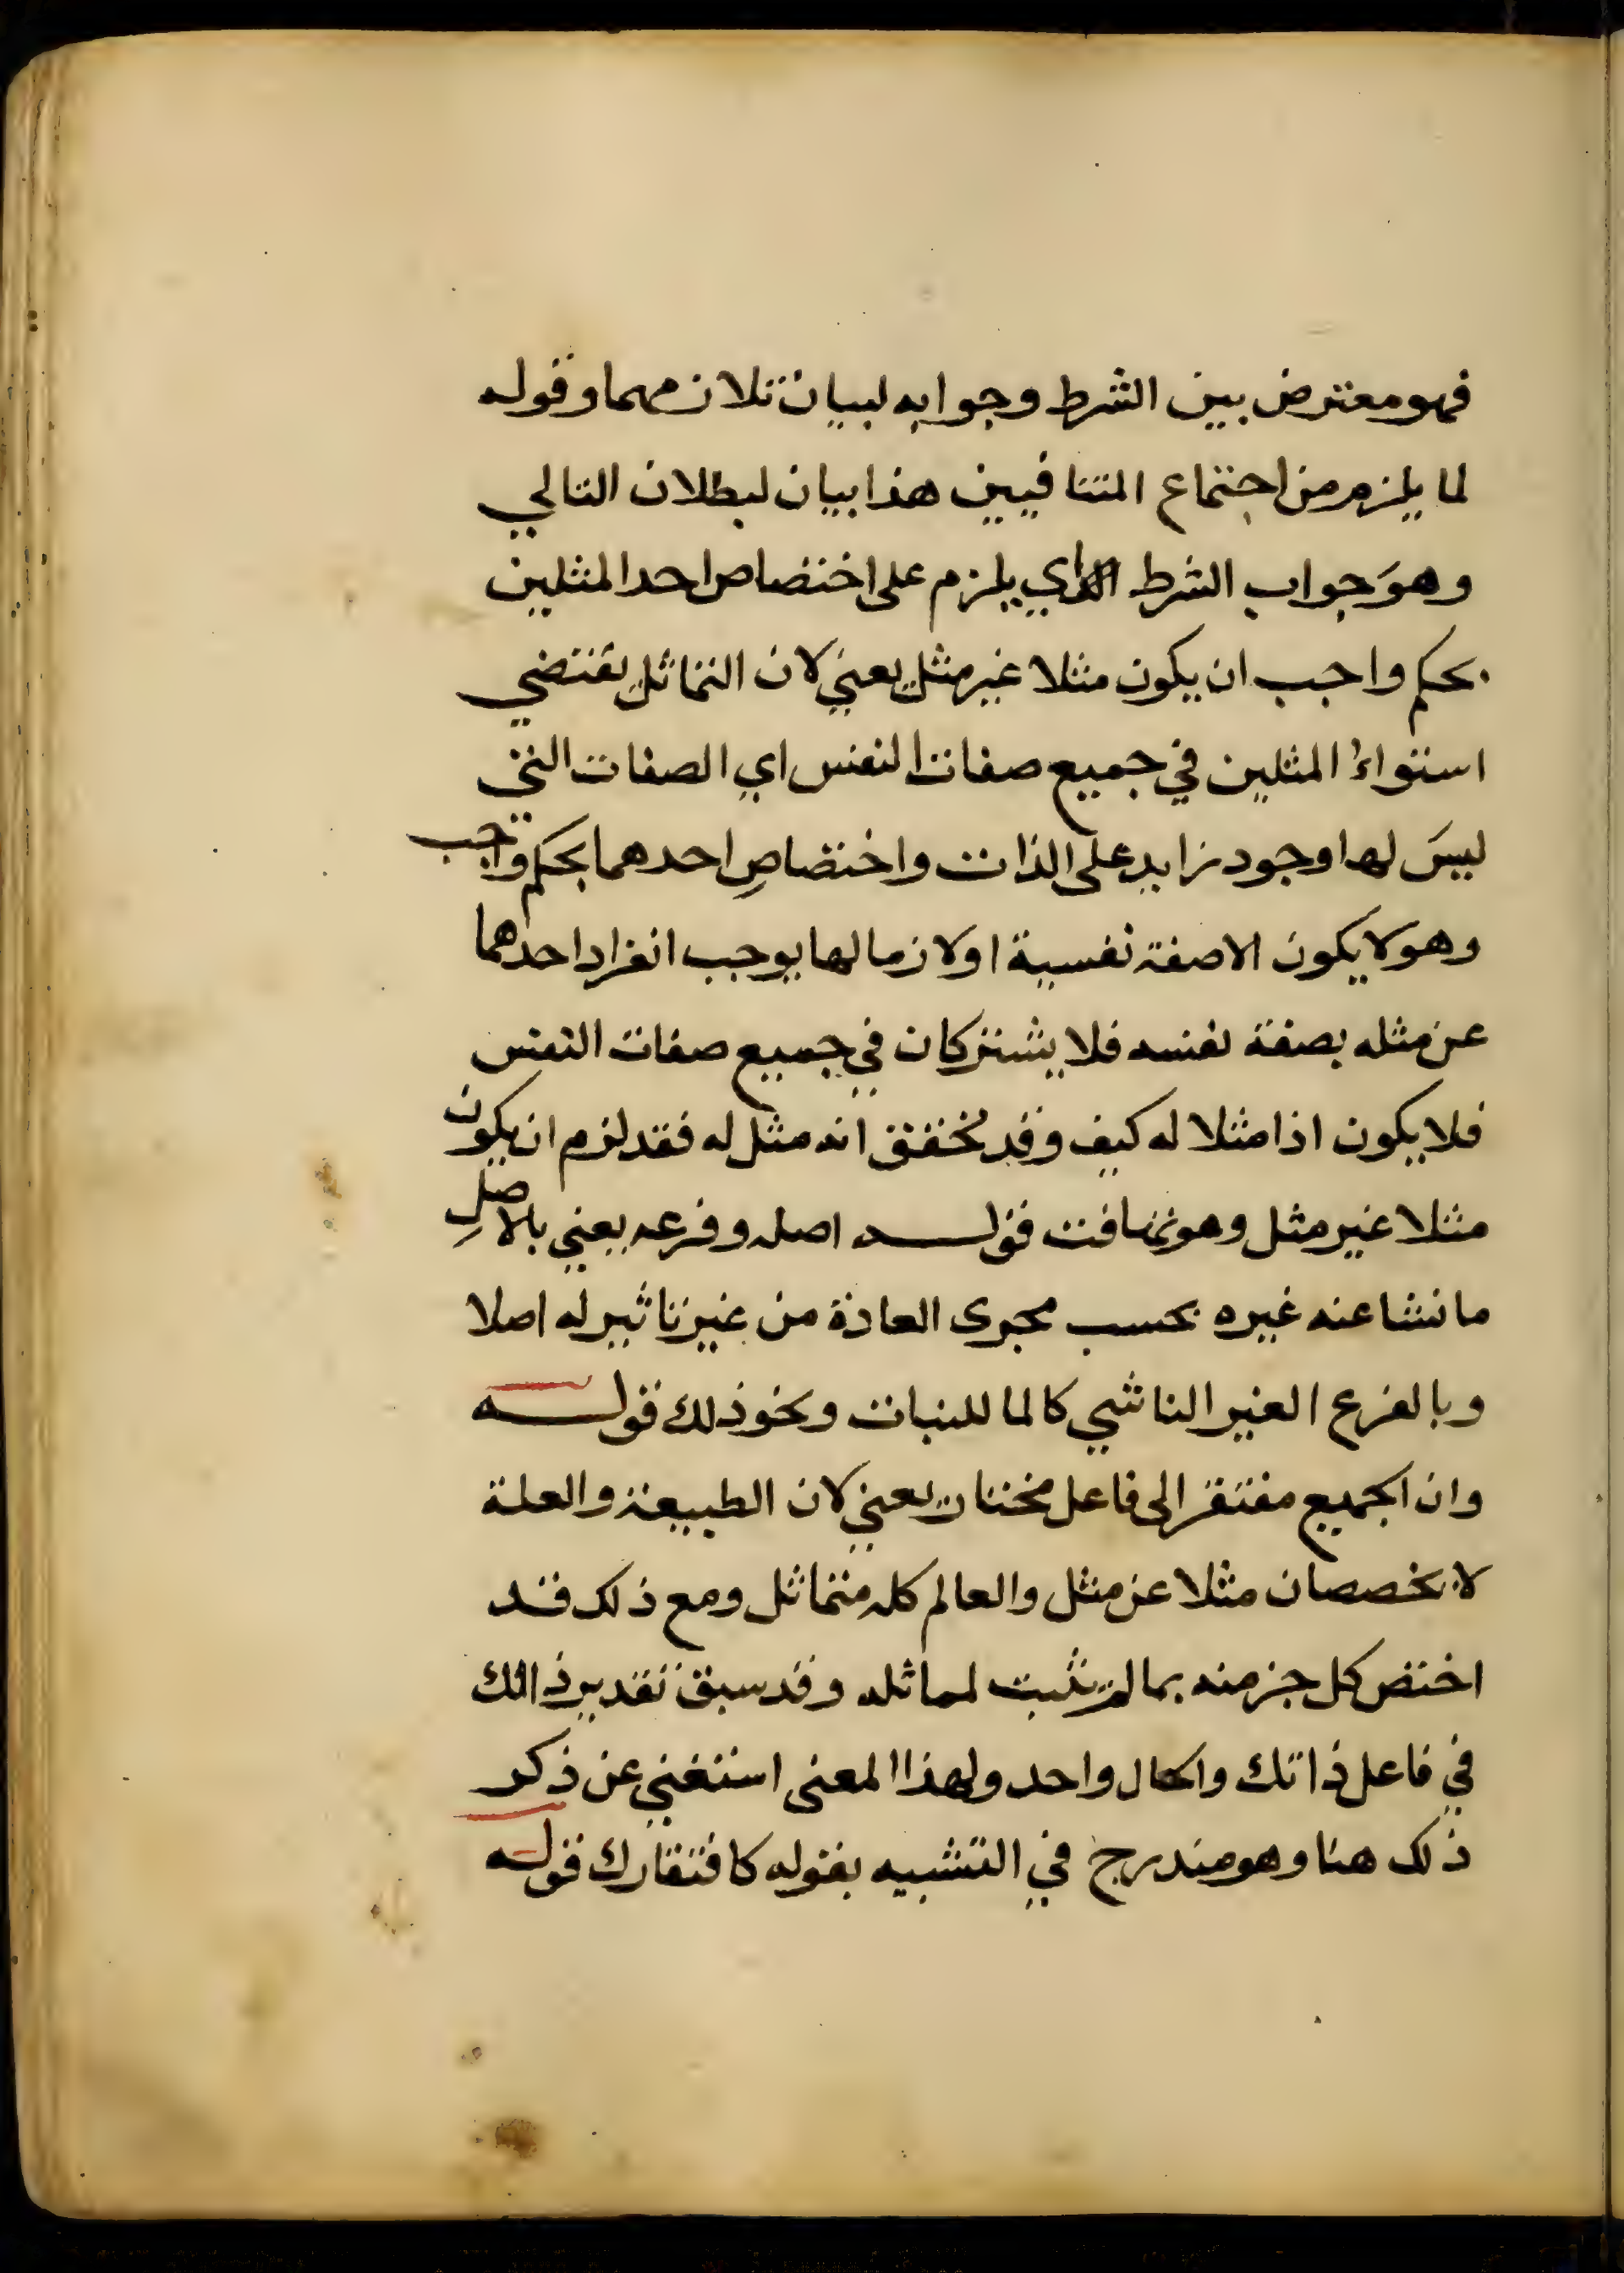 فهو معترض بين الشرط وجوابه لبيان تلازمهما وقوله
لما يلزم من اجتماع المتنافيين هذا بيان لبطلان التالي
وهو جواب الشرط اي يلزم على اختصاص احد المثلين
بحكم واجب ان يكون مثلا غير مثل يعني لان التماثل يقتضي
استواء المثلين في جميع صفات النفس اي الصفات التي
ليس لها وجود زايد على الذات واختصاص احدهما بحكم واجب
وهو لا يكون الا صفة نفسية او لازما لها يوجب انفراد احدهما
عن مثله بصفة نفسه فلا يشتركان في جميع صفات النفس
فلا يكون اذا مثلا له كيف وقد تحقق انه مثل له فقد لزم ان يكون
مثلا غير مثل وهو تهافت قوله اصله وفرعه يعني بالاصل
ما نشا عنه غيره بحسب مجرى العادة من غير تاثير له اصلا
وبالفرع الغير الناشي كالما للنبات ونحو ذلك قوله
وان الجميع مفتقر الى فاعل مختار يعني لان الطبيعة والعلة
لا يخصصان مثلا عن مثل والعالم كله متماثل ومع ذلك فقد
اختص كل جز منه بما لم يثبت لمماثله وقد سبق تقدير ذلك
في فاعل ذاتك والحال واحد ولهذا المعنى استغني عن ذكر
ذلك هنا وهو مندرج في التشبيه بقوله كافتقارك قوله